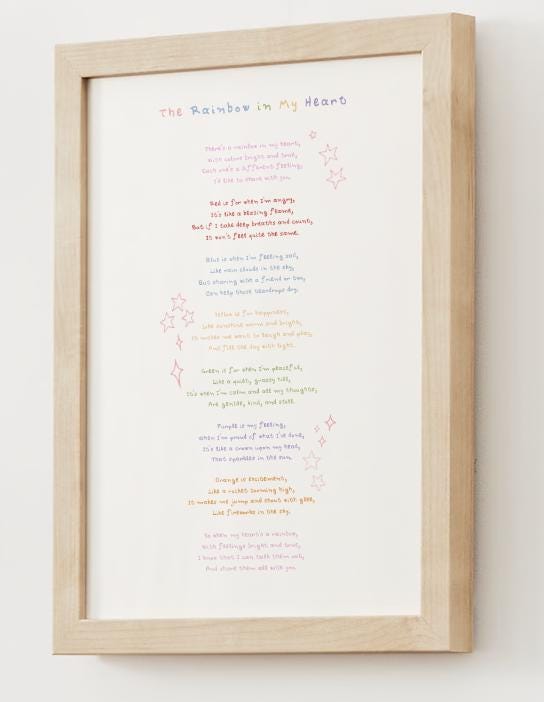 The Rainbow in My Heart
There's a rainbow in my heart,
With colors bright and true,
Each one's a different feeling,
I'd like to share with you.
Red is for when I'm angry,
It's like a blazing flame,
But if I take deep breaths and count,
It won't feel quite the same.
Blue is when I'm feeling sad,
Like rain clouds in the sky,
But sharing with a friend or two,
Can help those teardrops dry.
Yellow is for happiness,
Like sunshine warm and bright,
It makes me want to laugh and play,
And fill the day with light.
Green is for when I'm peaceful,
Like a quiet, grassy hill,
It's when I'm calm and all my thoughts,
Are gentle, kind, and still.
Purple is my feeling,
When I'm proud of what I've done,
It's like a crown upon my head,
That sparkles in the sun.
Orange is excitement,
Like a rocket zooming high,
It makes me jump and shout with glee,
Like fireworks in the sky.
So when my heart's a rainbow,
With feelings bright and true,
I know that I can talk them out,
And share them all with you.